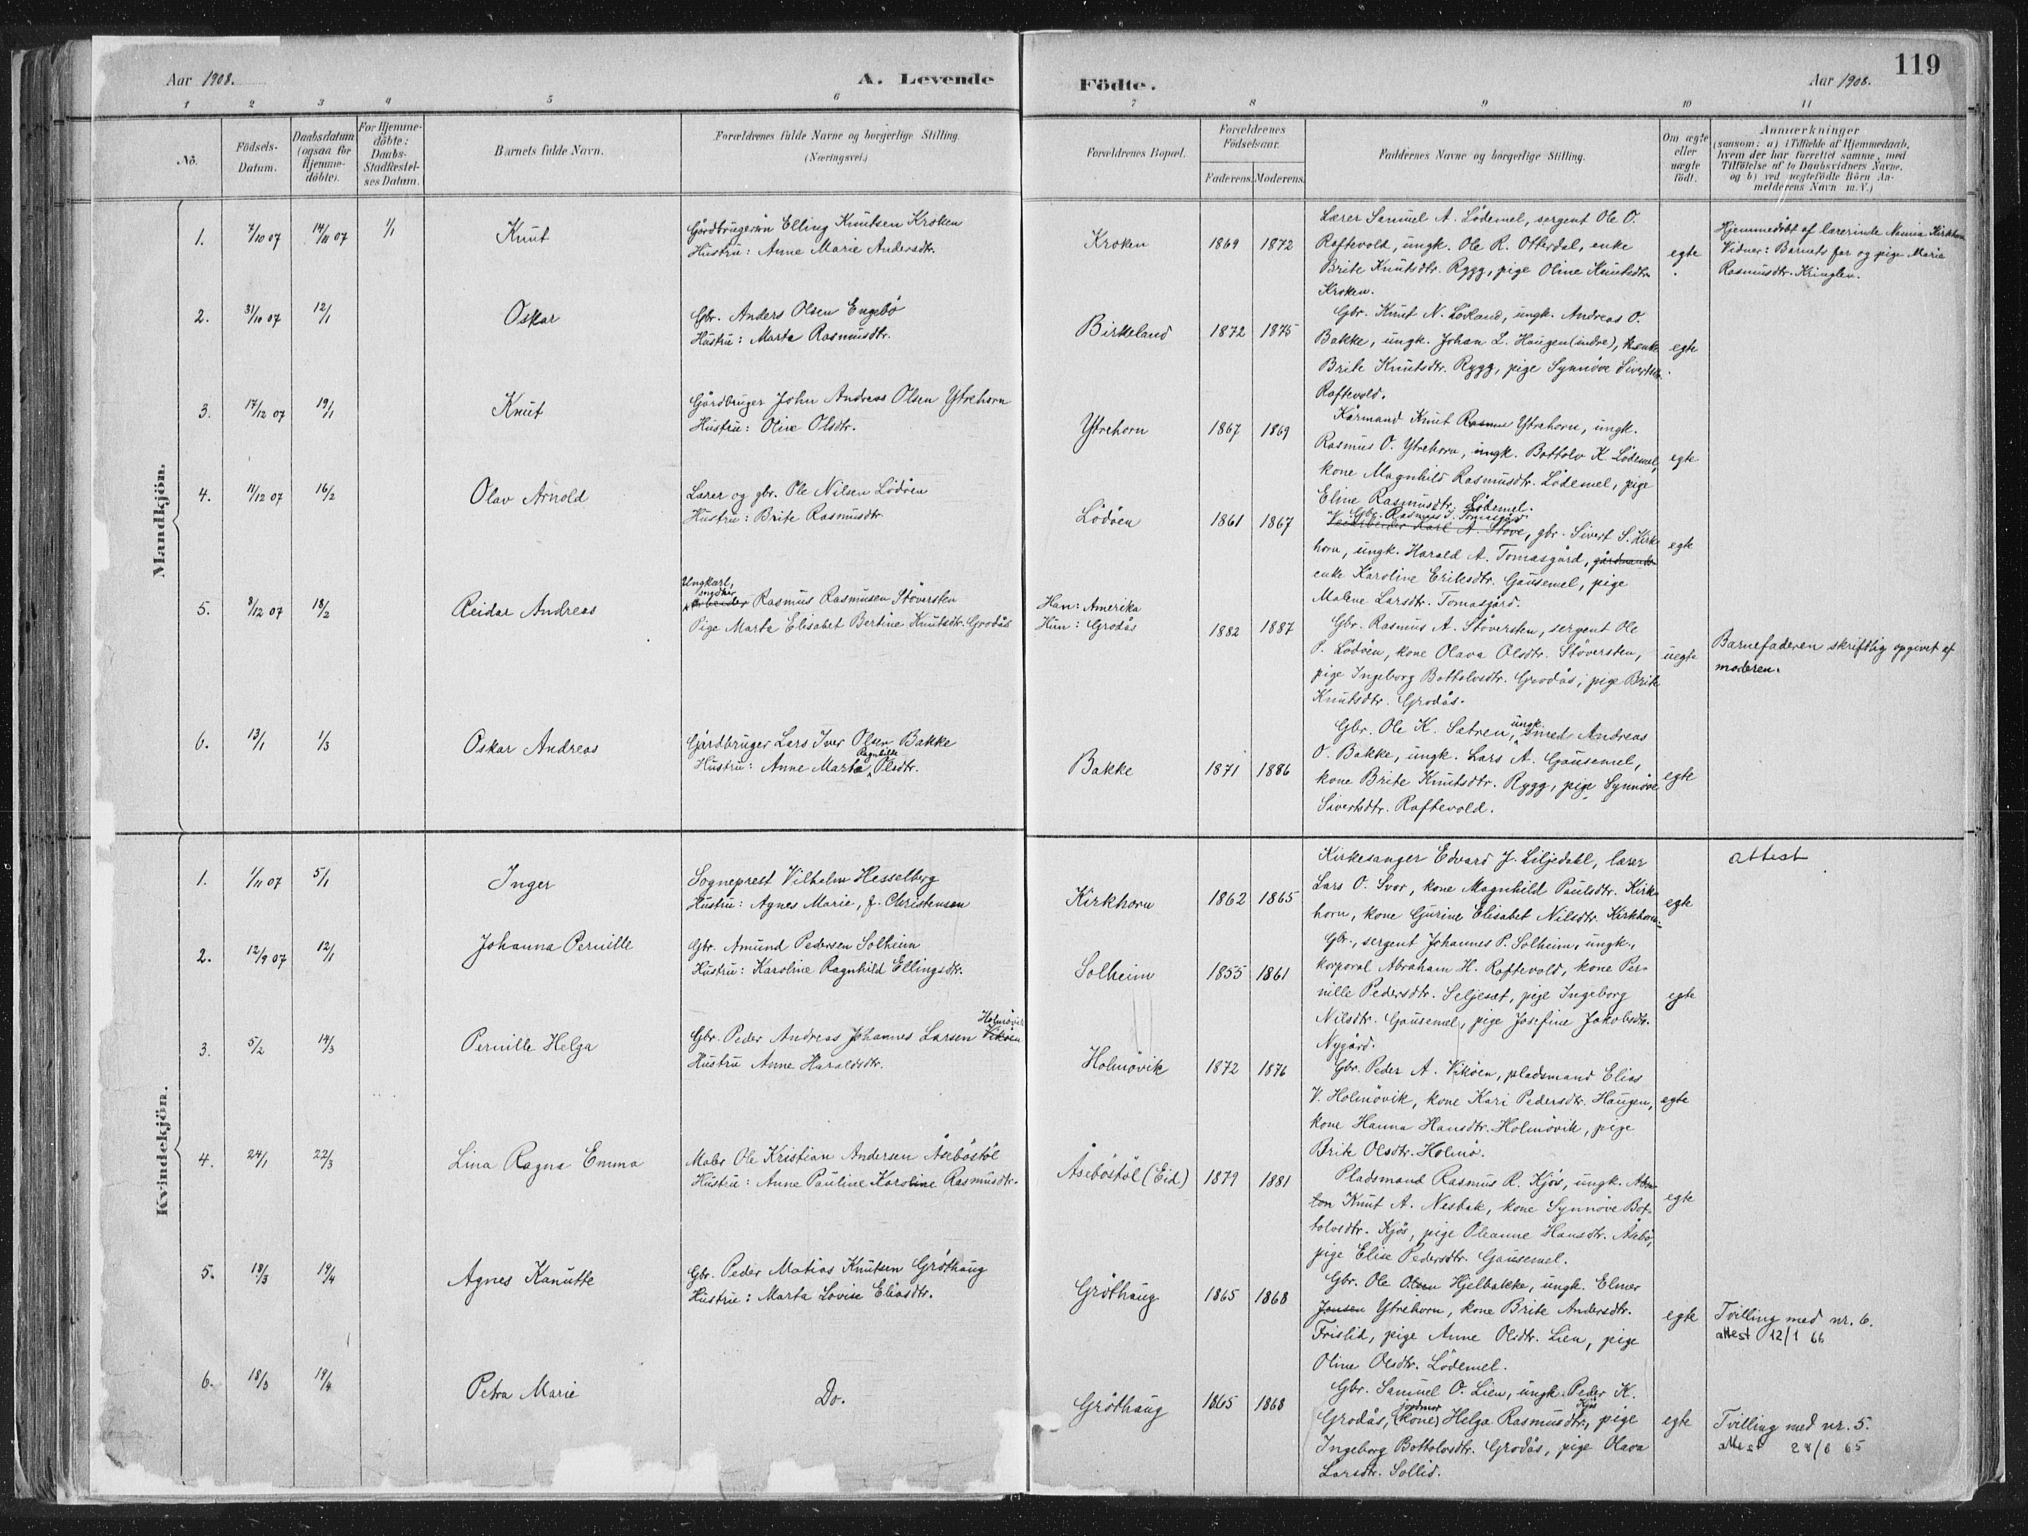 Aar 1908.
A. Levende
Födte.
Aar 1908.
119
1 2 3 4 5 6 7 8 9 10 11
No.
Födsels-
Datum.
Daabsdatum
(ogsaa for
Hjemme-
döbte).
For Hjemme-
döbte:
Daabs-
Stadfæstel-
ses Datum.
Barnets fulde Navn.
Forældrenes fulde Navne og borgerlige Stilling.
(Næringsvei.)
Forældrenes Bopæl.
Forældrenes
Födselsaar.
Faderens. Moderens.
Faddernes Navne og borgerlige Stilling.
Om ægte
eller
uægte
födt.
Anmærkninger
(saasom: a) i Tilfælde af Hjemmedaab,
hvem der har forrettet samme, med
Tilföielse af to Daabsvidners Navne,
og b) ved uægtefödte Börn An-
melderens Navn m. V.)
Mandkjön.
1. 7/10 07 14/11 07 1/1 Knut
Gårdbruger Elling Knutsen Kroken
Hustru: Anne Marie Andersdtr.
Kroken 1869 1872
Lærer Samuel A. Lödemel, sergent Ole O.
Raftevold, ungk. Ole R. Otterdal, enke
Brite Knutsdtr. Rygg, pige Oline Knutsdtr.
Kroken.
egte
Hjemmedöbt af lærerinde Nanna Kirkhorn
Vidner: Barnets far og pige Marie
Rasmusdtr. Kringlen.
2. 31/10 07 12/1 Oskar
Gbr. Anders Olsen Engebö
Hustru: Marta Rasmusdtr.
Birkeland 1872 1875
Gbr. Knut N. Lökland, ungk. Andreas O.
Bakke, ungk. Johan L. Haugen (indre), enke
Brite Knutsdtr. Rygg, pige Synnöve Sivertsdtr.
Raftevold.
egte
3. 17/12 07 19/1 Knut
Gårdbruger John Andreas Olsen Ytrehorn
Hustru: Oline Olsdtr.
Ytrehorn 1867 1869
Kårmand Knut Rasmus Ytrehorn, ungk.
Rasmus O. Ytrehorn, ungk. Bottolv K. Lödemel,
kone Magnhild Rasmusdtr. Lödemel, pige
Eline Rasmusdtr. Lödemel.
egte
4. 11/12 07 16/2 Olav Arnold
Lærer og gbr. Ole Nilsen Lödöen
Hustru: Brite Rasmusdtr.
Lödöen 1861 1867
Gbr. Rasmus J. Tomasgård
Karl A. Stove, gbr. Sivert S. Kirk-
horn, ungk. Harald A. Tomasgård, gårdmands
enke Karoline Eriksdtr. Gausemel, pige
Malene Larsdtr. Tomasgård.
egte
5. 9/12 07 18/2 Reidar Andreas
Ungkarl,
Arbeider Rasmus Rasmusen Stöversten
Pige Marta Elisabet Bertine Knutsdtr. Grodås
Han: Amerika
Hun: Grodås
1882 1887
Gbr. Rasmus A. Stöversten, sergent Ole
P. Lödöen, kone Olava Olsdtr. Stöversten,
pige Ingeborg Bottolvsdtr. Grodås, pige Brite
Knutsdtr. Grodås.
uegte
Barnefaderen skriftlig opgivet af
moderen.
6. 13/1 1/3 Oskar Andreas
Gårdbruger Lars Iver Olsen Bakke
Ragnhilde
Hustru: Anne Marta Olsdtr.
Bakke 1871 1886
Gbr. Ole K. Sætren, ungk. smed Andreas
O. Bakke, ungk. Lars A. Gausemel,
kone Brite Knutsdtr. Rygg, pige Synnöve
Sivertsdtr. Raftevold.
egte
Kvindekjön.
1. 1/11 07 5/1 Inger
Sogneprest Vilhelm Hesselberg
Hustru: Agnes Marie, f. Christensen
Kirkhorn 1862 1865
Kirkesanger Edvard J. Liljedahl, lærer
Lars O. Svor, kone Magnhild Paulsdtr. Kirk-
horn, kone Gurine Elisabet Nilsdtr. Kirkhorn.
egte
attest
2. 12/9 07 12/1 Johanna Pernille
Gbr. Amund Pedersen Solheim
Hustru: Karoline Ragnhild Ellingsdtr.
Solheim 1855 1861
Gbr., sergent Johannes P. Solheim, ungk.,
korporal Abraham H. Raftevold, kone Per-
nille Pedersdtr. Seljeset, pige Ingeborg
Nilsdtr. Gausemel, pige Josefine Jakobsdtr.
Nygård.
egte
3. 5/2 14/3 Pernille Helga
Holmövik
Gbr. Peder Andreas Johannes Larsen Viköen
Hustru Anne Haraldsdtr.
Holmövik 1872 1876
Gbr. Peder A. Viköen, pladsmand Elias
V. Holmövik, kone Kari Pedersdtr. Haugen,
kone Hanna Hansdtr. Holmövik, pige
Brite Olsdtr. Holmö.
egte
4. 24/1 22/3 Lina Ragna Emma
Ole Kristian Andersen Åseböstöl
Hustru: Anne Pauline Karoline Rasmusdtr.
Åseböstöl (Eid) 1879 1881
Pladsmand Rasmus R. Kjös, ungk.
Knut A. Nesbak, kone Synnöve Bot-
tolvsdtr. Kjös, pige Oleanne Hansdtr. Åsebö,
pige Elise Pedersdtr. Gausemel.
egte
5. 18/3 19/4 Agnes Kanutte
Gbr. Peder Matias Knutsen Gröthaug
Hustru: Marta Lovise Eliasdtr.
Gröthaug 1865 1868
Gbr. Ole Olsen Hjelbakke, ungk. Elmer
Jonsen Ytrehorn, kone Brite Andersdtr.
Frislid, pige Anne Olsdtr. Lien, pige
Oline Olsdtr. Lödemel.
egte
Tvilling med nr. 6.
attest 12/1 66
6. 18/3 19/4 Petra Marie
Do.
Gröthaug 1865 1868
Gbr. Samuel O. Lien, ungk. Peder K.
jordmor Kjös
Grodås, (kone) Helga Rasmusdtr., pige
Ingeborg Bottolvsdtr. Grodås, pige Olava
Larsdtr. Sollid.
egte
Tvilling med nr. 5.
attest 28/6 65